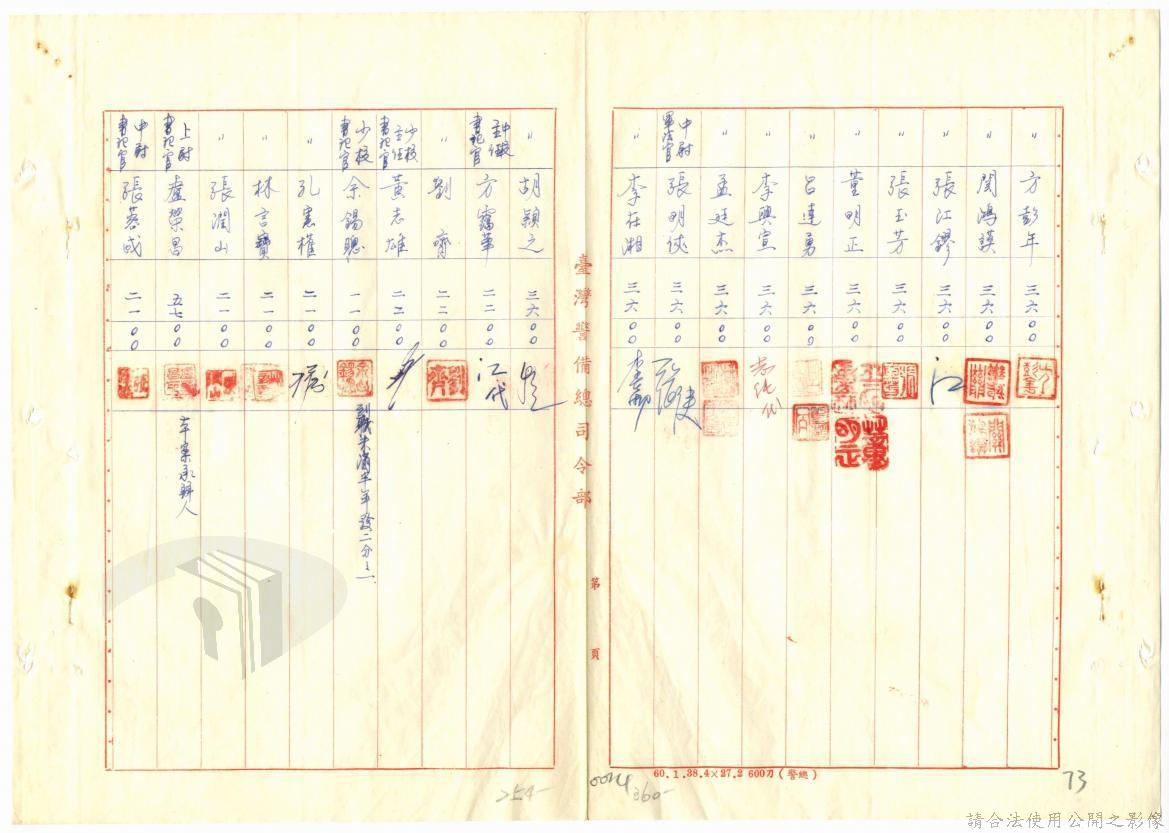 〃 方彭年 三六〇〇
〃 閔鴻謨 三六〇〇
〃 張江鏐 三六〇〇
〃 張玉芳 三六〇〇
〃 董明正 三六〇〇
〃 呂連勇 三六〇〇
〃 李興宣 三六〇〇
〃 孟廷杰 三六〇〇
中尉軍法官 張明俠 三六〇〇
〃 李在湘 三六〇〇
臺灣警備總司令部
第 頁
〃 胡穎之 三六〇〇
中校主任書記官 方靄華 二二〇〇 江代
〃 劉齊 二二〇〇
少校主任書記官 黃志雄 二二〇〇
少校書記官 余錫聰 一一〇〇 到職未滿半年發二分之一
〃 孔憲權 二一〇〇
〃 林言寶 二一〇〇
〃 張潤山 二一〇〇
上尉書記官 盧榮昌 五七〇〇 本案承辦人
中尉書記官 張蓉成 二一〇〇
60.1.38.4×27.2 600刀(警總)
254-
0024
360-
73
請合法使用公開之影像